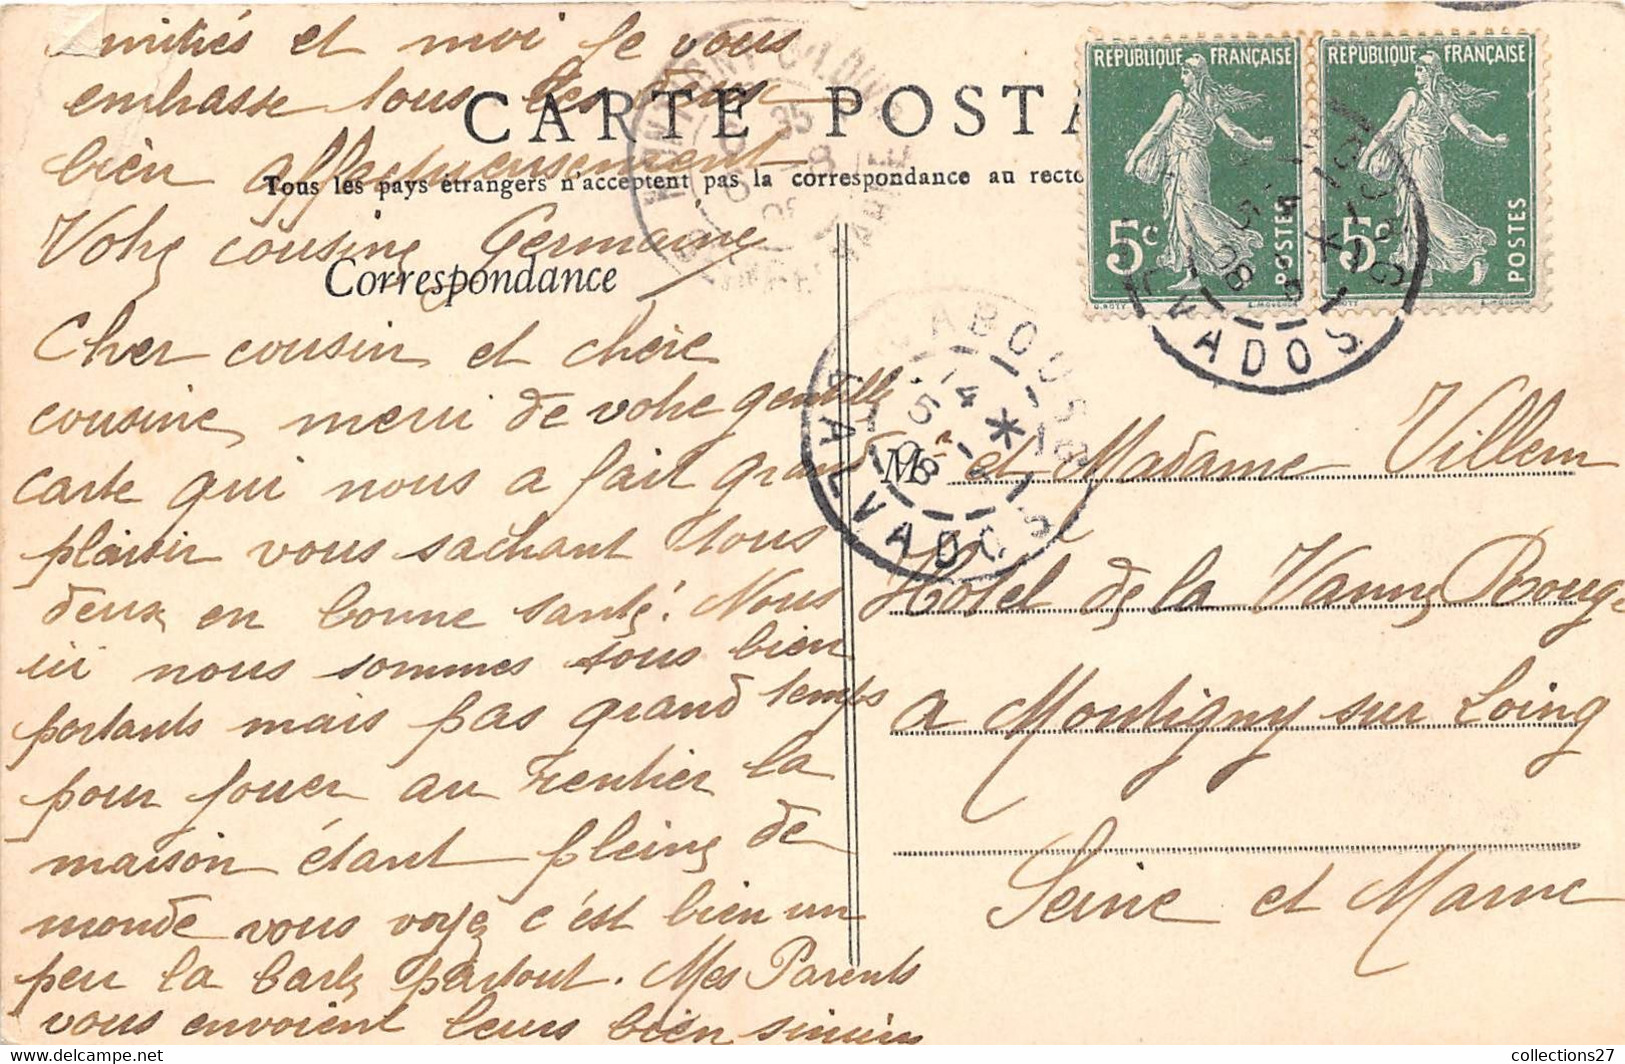 amitiés et moi je vous
embrasse tous les deux
bien affectueusement
Votre cousine Germaine
CARTE POSTA
Tous les pays étrangers n'acceptent pas la correspondance au recto
Correspondance
Cher cousin et chère
cousine, merci de votre gentille
carte qui nous a fait grand
plaisir vous sachant tous
deux en bonne santé. Nous
ici nous sommes tous bien
portants mais pas grand temps
pour jouer au rentier la
maison étant pleine de
monde vous voyez c'est bien un
peu la barbe partout. Mes Parents
vous envoient leurs bien sincères
RÉPUBLIQUE FRANÇAISE
5c POSTES
RÉPUBLIQUE FRANÇAISE
5c POSTES
CABOURG
14
5
08
CALVADOS
VADOS
Mr et Madame Villem
Hotel de la Vanne Rouge
a Montigny sur Loing
Seine et Marne
collections27